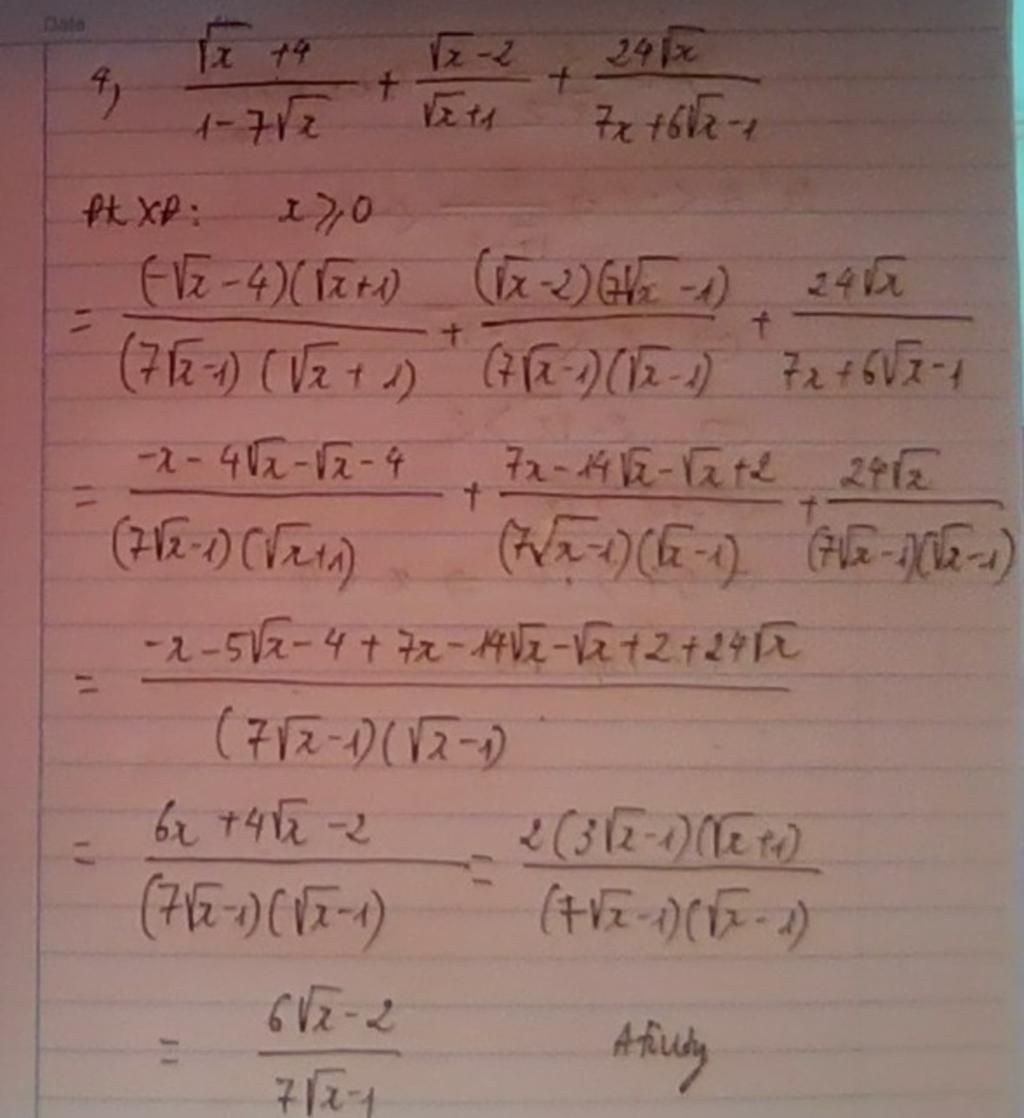 Date
4, (√x + 4)/(1 - 7√x) + (√x - 2)/(√x + 1) + 24√x/(7x + 6√x - 1)
x ⩾ 0
= (-√x - 4)(√x + 1)/(7√x - 1)(√x + 1) + (√x - 2)(7√x - 1)/(7√x - 1)(√x - 1) + 24√x/(7x + 6√x - 1)
= (-x - 4√x - √x - 4)/(7√x - 1)(√x + 1) + (7x - 14√x - √x + 2)/(7√x - 1)(√x - 1) + 24√x/(7√x - 1)(√x - 1)
= (-x - 5√x - 4 + 7x - 14√x - √x + 2 + 24√x)/(7√x - 1)(√x - 1)
= (6x + 4√x - 2)/(7√x - 1)(√x - 1) = 2(3√x - 1)(√x + 1)/(7√x - 1)(√x - 1)
= (6√x - 2)/(7√x - 1)